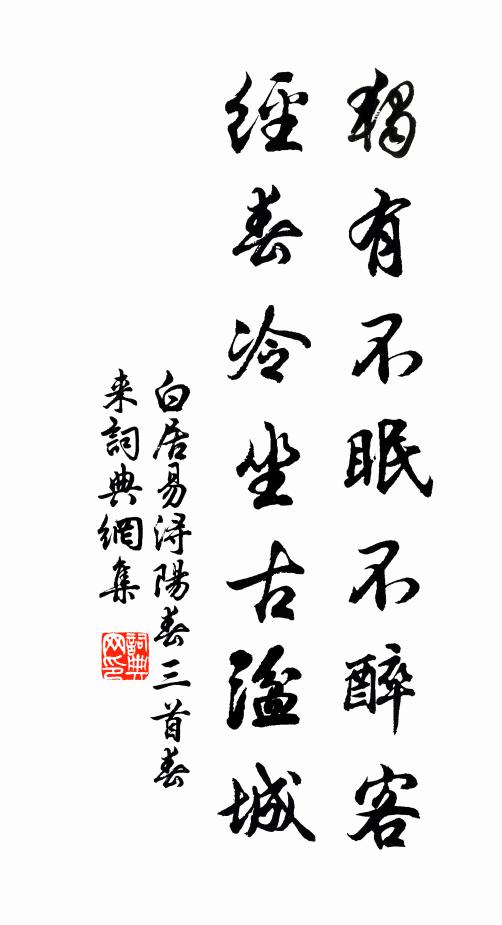 獨有不眠不醉客
經春冷坐古湓城
白居易潯陽春三首春
来詞典網集
詞典网印